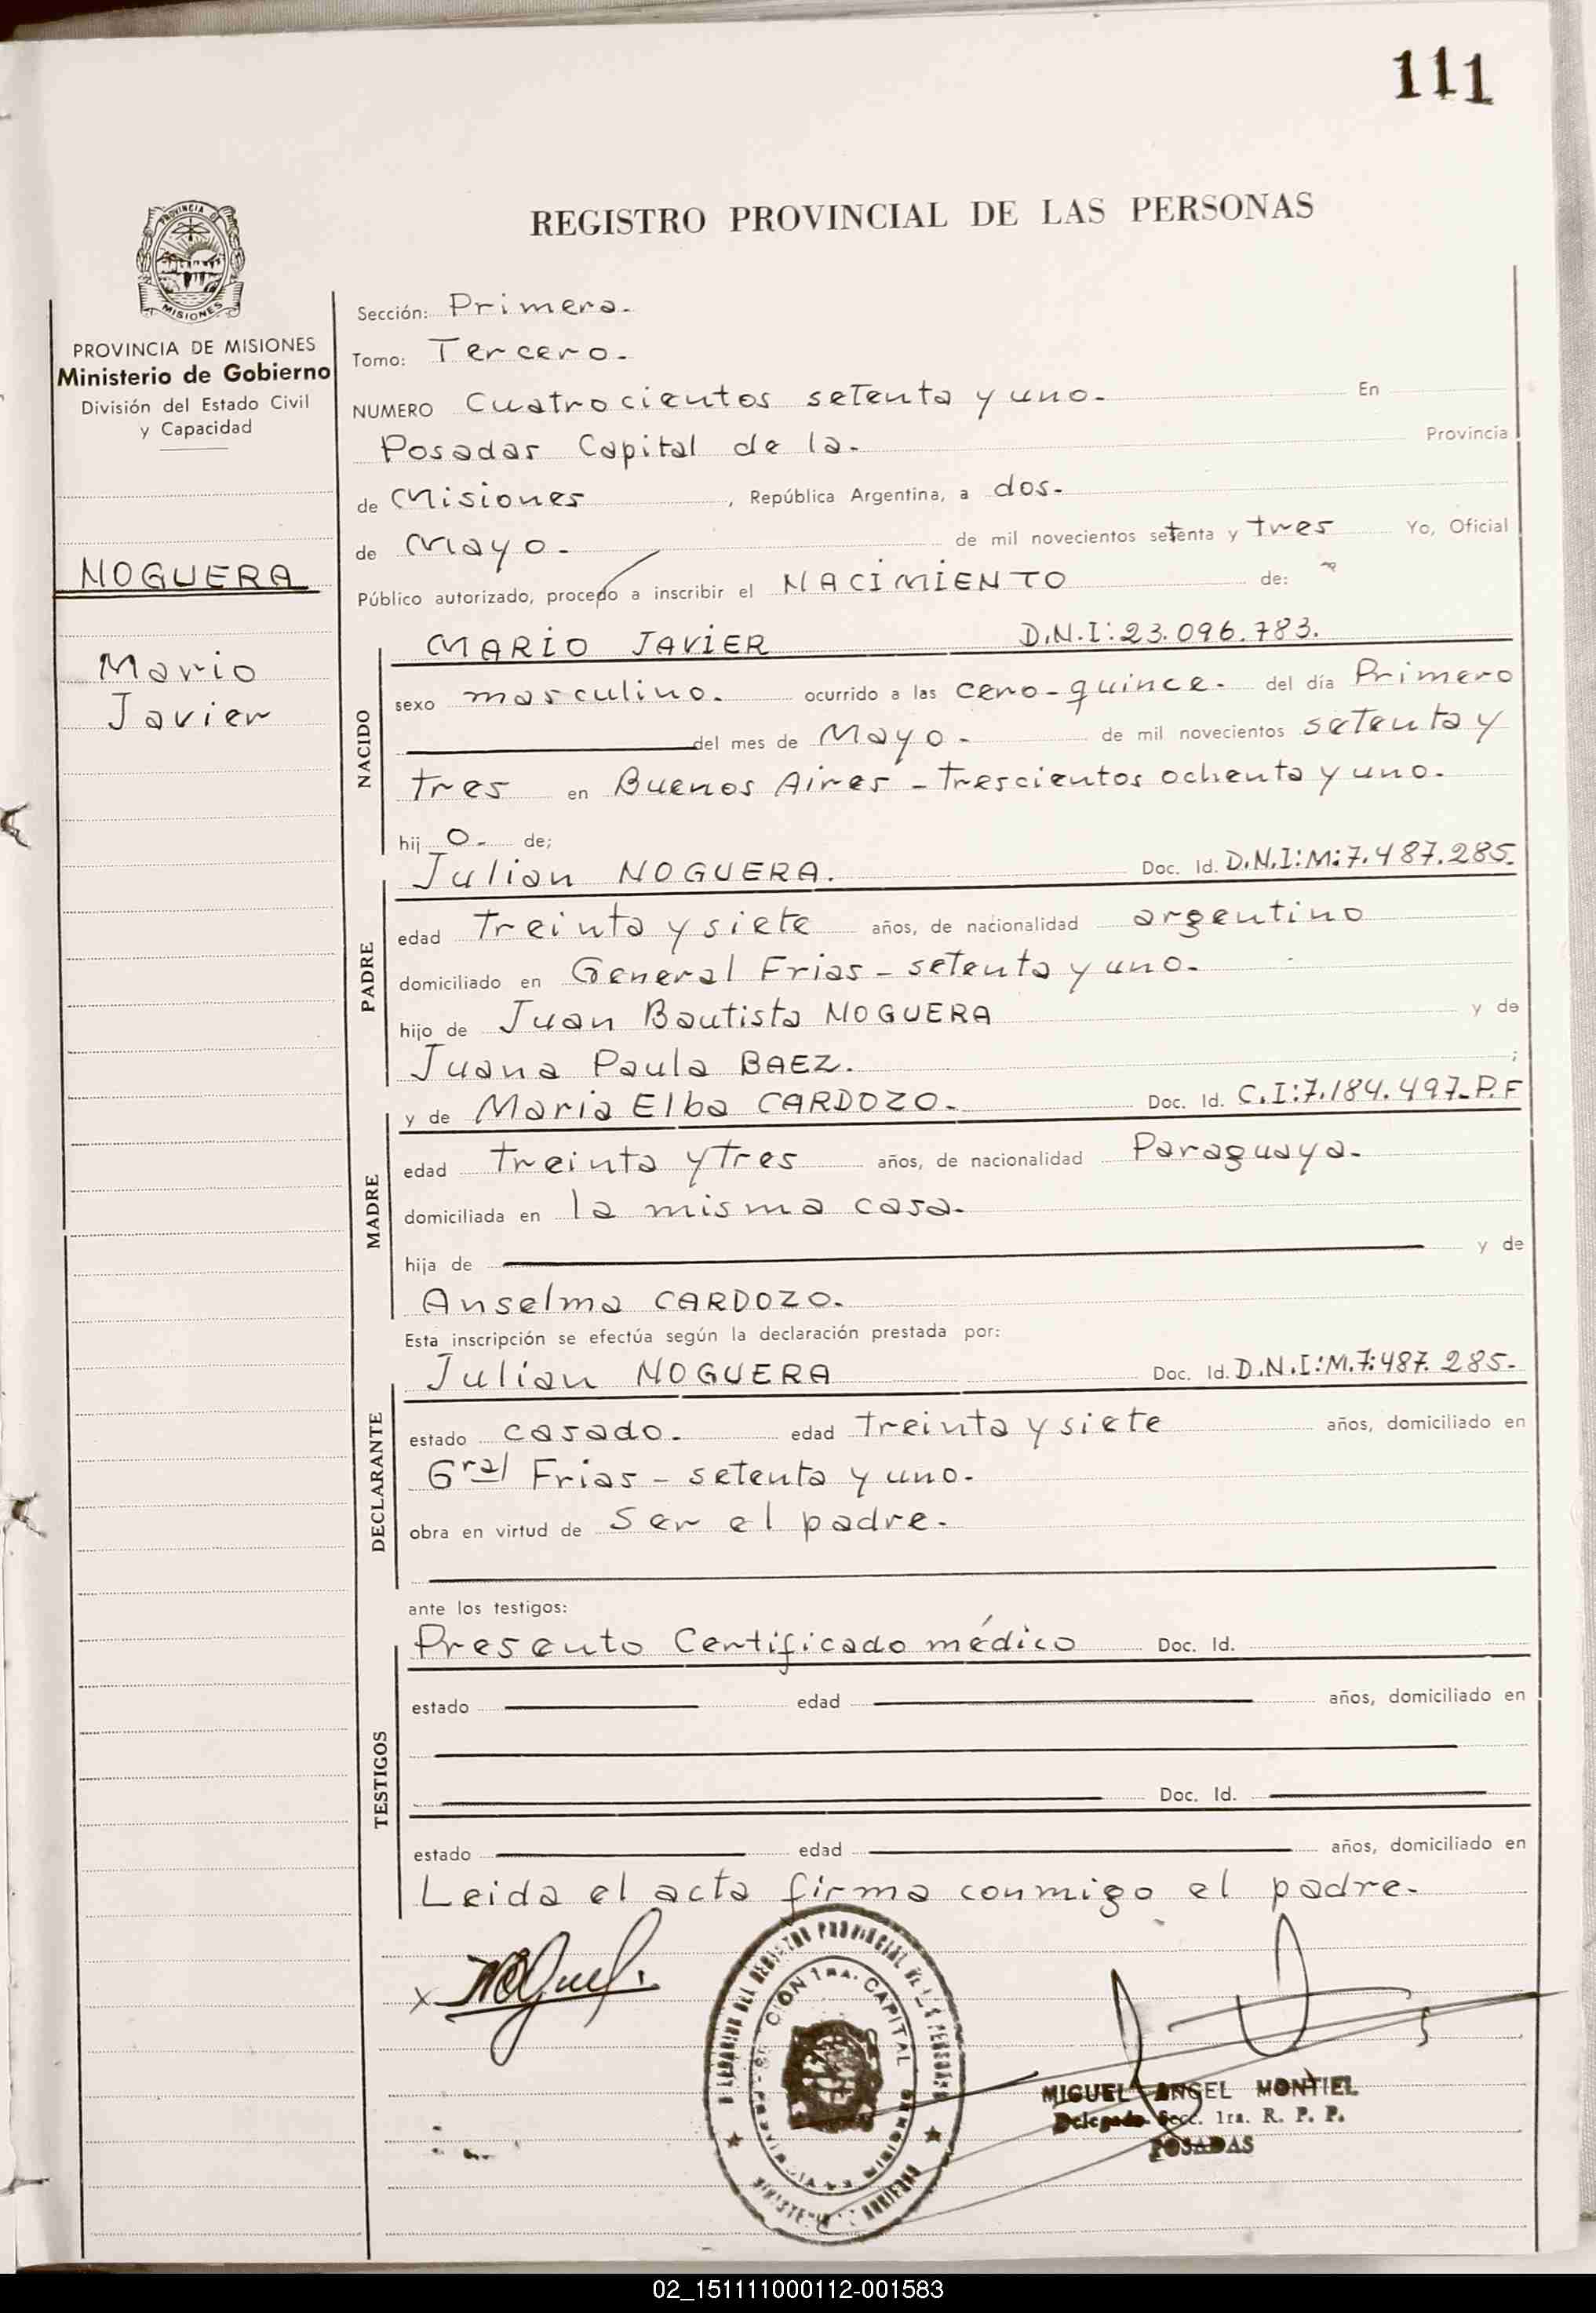 111
REGISTRO PROVINCIAL DE LAS PERSONAS
PROVINCIA DE
MISIONES
PROVINCIA DE MISIONES
Ministerio de Gobierno
División del Estado Civil
y Capacidad
NOGUERA
Mario
Javier
Sección: Primera.
Tomo: Tercero.
NUMERO Cuatrocientos setenta y uno. En
Posadas Capital de la. Provincia
de Misiones, República Argentina, a dos.
de Mayo. de mil novecientos setenta y tres Yo, Oficial
Público autorizado, procedo a inscribir el NACIMIENTO de:
MARIO JAVIER D.N.I:23.096.783.
NACIDO
sexo masculino. ocurrido a las cero-quince. del día Primero
del mes de Mayo. de mil novecientos setenta y
tres en Buenos Aires - trescientos ochenta y uno.
hij o. de;
Julian NOGUERA. Doc. Id. D.N.I:M:7.487.285.
PADRE
edad treinta y siete años, de nacionalidad argentino
domiciliado en General Frias - setenta y uno.
hijo de Juan Bautista NOGUERA y de
Juana Paula BAEZ. ;
y de Maria Elba CARDOZO. Doc. Id. C.I:7.184.497-P.F
MADRE
edad treinta y tres años, de nacionalidad Paraguaya.
domiciliada en la misma casa.
hija de y de
Anselma CARDOZO.
Esta inscripción se efectúa según la declaración prestada por:
Julian NOGUERA Doc. Id. D.N.I:M.7:487.285.
DECLARANTE
estado casado. edad treinta y siete años, domiciliado en
Gral Frias - setenta y uno.
obra en virtud de ser el padre.
ante los testigos:
Presento Certificado médico Doc. Id.
TESTIGOS
estado edad años, domiciliado en
Doc. Id.
estado edad años, domiciliado en
Leida el acta firma conmigo el padre.
x
MIGUEL ANGEL MONTIEL
Delegado Secc. 1ra. R. P. P.
POSADAS
02_151111000112-001583